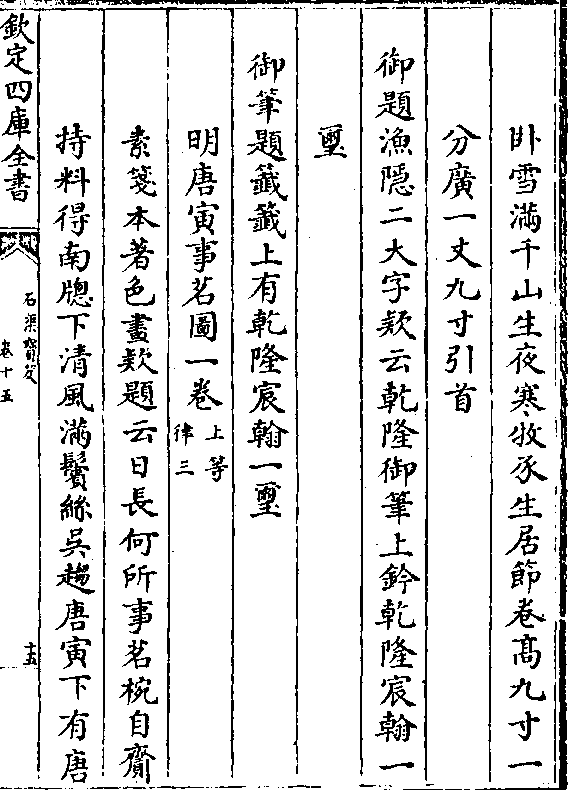 卧雪滿千山生夜寒牧承生居節卷髙九寸一
分廣一丈九寸引首
御題漁隱二大字欵云乾隆御筆上鈐乾隆宸翰一
璽
御筆題籤籤上有乾隆宸翰一璽
明唐寅事茗圖一卷上等律三
素箋本著色畫欵題云日長何所事茗椀自齎
持料得南牕下清風滿鬢絲吳趨唐寅下有唐
欽定四庫全書
石渠寳笈
卷十五
十五